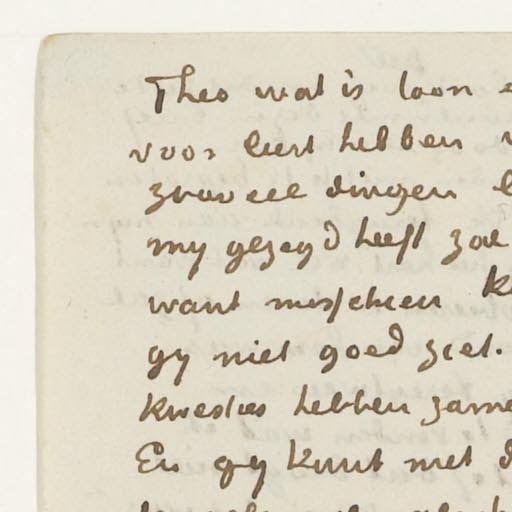 Theo wat is toon
voor leert hebben
zooveel dingen
my gezegd heeft zal
want misschien
gy niet goed ziet.
Kwesties hebben zame
En gy kunt met